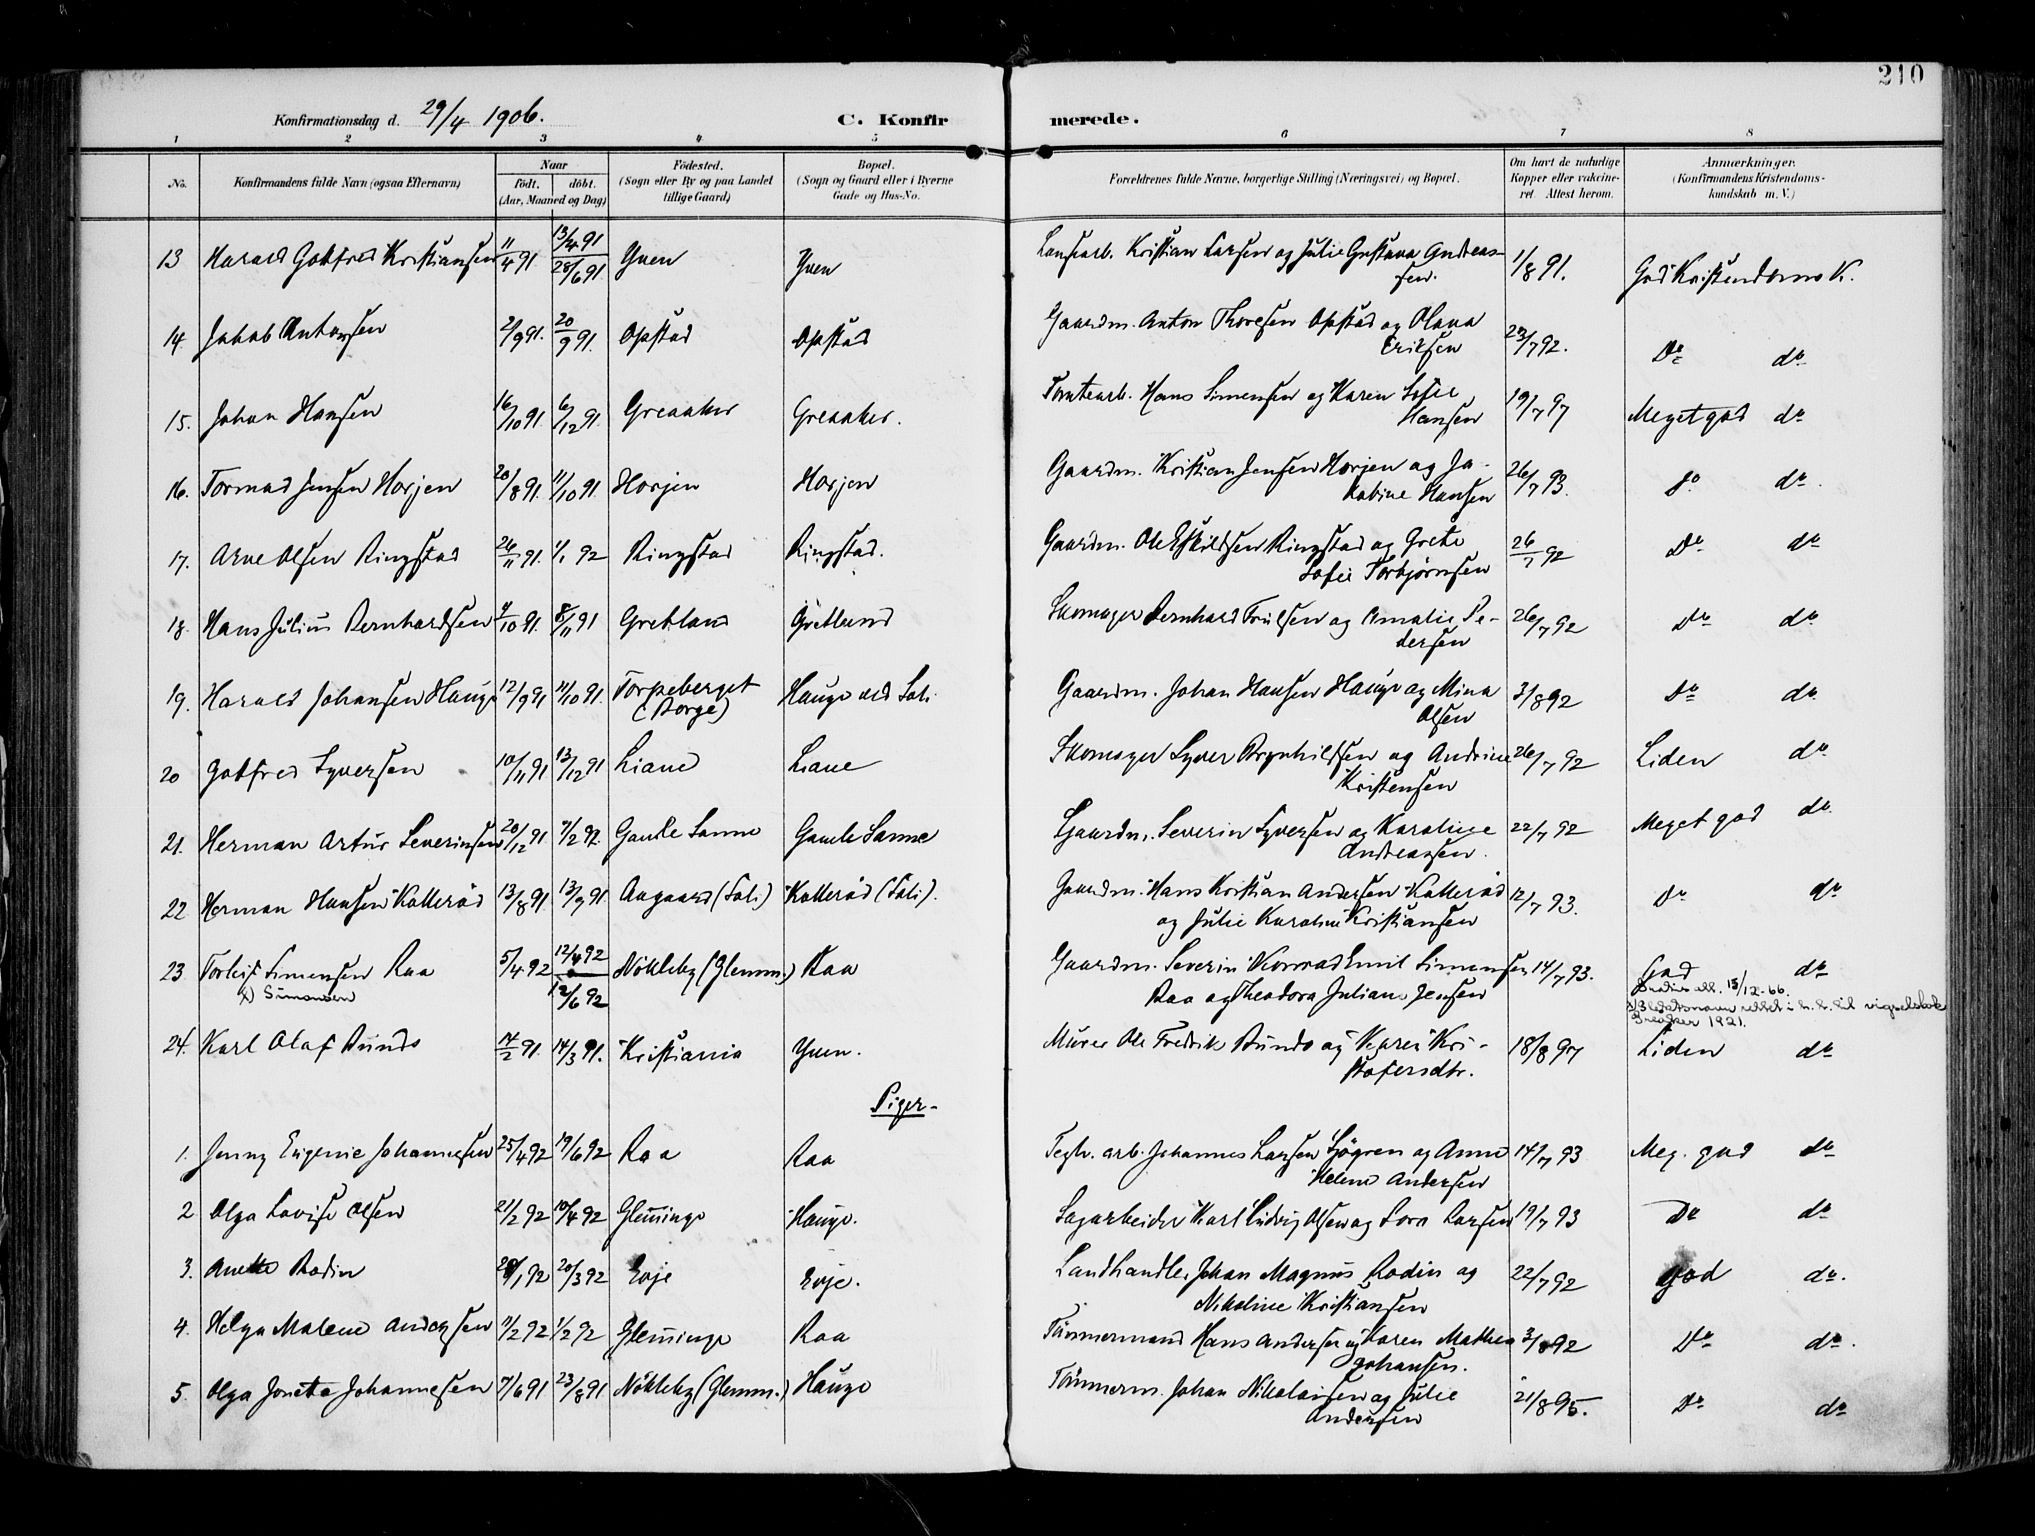 210
Konfirmationsdag d. 29/4 1906.
C. Konfirmerede.
1 2 3 4 5 6 7 8
No. Konfirmandens fulde Navn (ogsaa Efternavn) Naar født. døbt. (Aar, Maaned og Dag) Fødested. (Sogn eller By og paa Landet tillige Gaard) Bopæl. (Sogn og Gaard eller i Byerne Gade og Hus-No. Forældrenes fulde Navne, borgerlige Stilling (Næringsvei) og Bopæl. Om havt de naturlige Kopper eller vakcineret. Attest herom. Anmærkninger. (Konfirmandens Kristendomskundskab m. V.)
13 Harald Gotfred Kristiansen 11/4 91 13/4 91 28/6 91 Yven Yven Kristian Larsen og Julie Gustava Andreassen. 1/8 91. God Kristendoms K.
14 Jakob Antonsen 2/9 91. 20/9 91. Opstad Opstad Gaardm. Anton Thoresen Opstad og Olava Eriksen 23/7 92. Do do
15. Johan Hansen 16/10 91. 6/12 91. Greaaker Greaaker. Tomtearb. Hans Simensen og Karen Sofie Hansen 19/7 97 Meget god do
16. Tormod Jensen Horjen 20/8 91. 11/10 91. Horjen Horjen Gaardm. Kristian Jensen Horjen og Jakobine Hansen 26/7 93. do do.
17. Arne Olsen Ringstad 26/11 91. 1/1 92 Ringstad Ringstad. Gaardm. Ole Eskildsen Ringstad og Grete Sofie Torbjørnsen 26/7 92 Do do
18. Hans Julius Bernhardsen 4/10 91. 8/11 91 Gretland Gretland Skomager Bernhard Trulsen og Amalie Pedersen 26/7 92 Do do
19. Harald Johansen Hauge 12/9 91 11/10 91. Torpeberget (Borge) Hauge ved Soli Gaardm. Johan Hansen Hauge og Mina Olsen 3/8 92 Do do
20 Gotfred Syversen 10/11 91 13/12 91 Liane Liane Skomager Syver Brynhildsen og Andrine Kristensen 26/7 92 Liden do
21. Herman Artur Severinsen 20/12 91 7/2 92. Gamle Sanne Gamle Sanne Gaardm. Severin Syversen og Karoline Andreassen. 22/7 92 Meget god do
22 Herman Hansen Kallerød 13/8 91 13/9 91. Aagaard (Soli) Kallerød (Soli). Gaardm. Hans Kristian Andersen Kallerød og Julie Karoline Kristiansen 12/7 93. Do do
23 Torleif Simensen Raa 5/4 92 12/4 92 12/6 92 Nökleby (Glemm.) Raa Gaardm. Severin Konrad Emil Simensen Raa og Theodora Juliane Jensen 14/7 93. God do
x) Simonsen
15/12-66.
Greaker 1921.
24. Karl Olaf Bundo 14/2 91. 14/3 91. Kristiania Yven. Murer Ole Fredrik Bundo og Karen Kristofersdtr. 18/8 97 Liden do
Piger.
1. Jenny Eugenie Johannesen 25/4 92 19/6 92 Raa Raa Teglv. arb. Johannes Larsen Sjögren og Anna Helene Andersen 14/7 93 Meg. god do
2 Olga Lovise Olsen 21/2 92 10/4 92 Glemminge Hauge. Sagarbeider Karl Ludvig Olsen og Lora Larsen 19/7 93 Do do
3. Anette Rodin 28/1 92 20/3 92 Evje Evje. Landhandler Johan Magnus Rodin og Nikoline Kristiansen 22/7 92 god do.
4. Helga Malene Andersen 11/2 92 1/2 92 Glemminge Raa Tömmermand Hans Andersen og Karen Mathea Johansen. 3/8 92 Do do.
5. Olga Josefa Johannesen 7/6 91 23/8 91 Nökleby (Glemm.) Hauge Tömmerm. Johan Nikolaisen og Julie Andersen 21/8 95. Do do